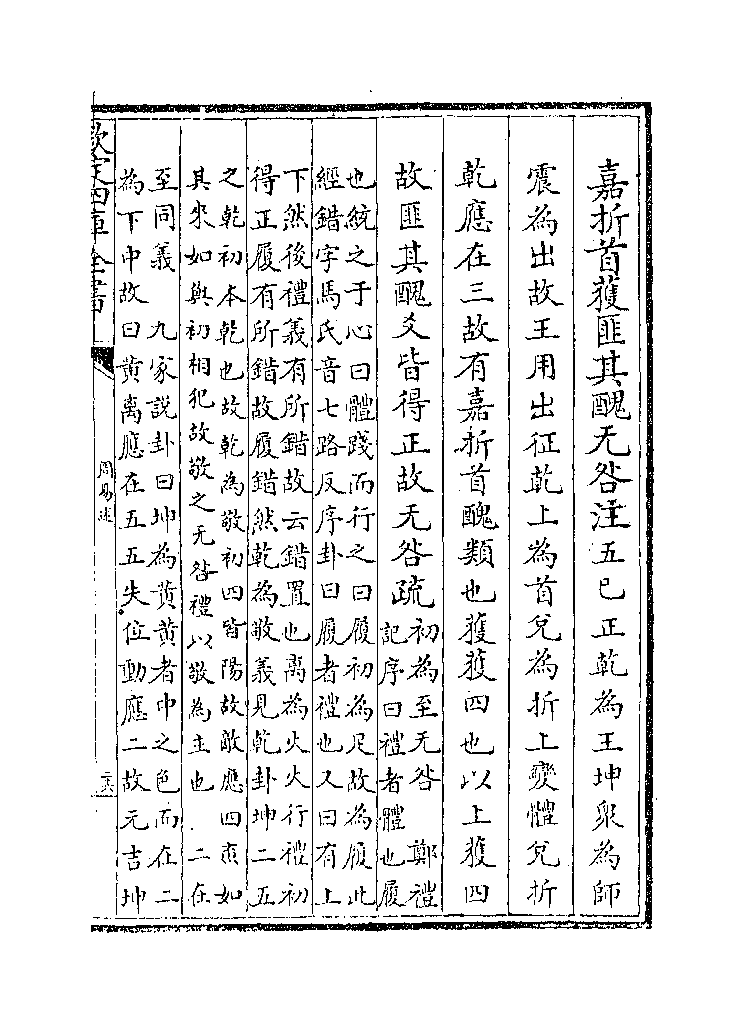 嘉折首獲匪其醜无咎注五已正乾為王坤衆為師
震為出故王用出征乾上為首兌為折上變體兌折
乾應在三故有嘉折首醜類也獲獲四也以上獲四
故匪其醜爻皆得正故无咎疏初為至无咎　鄭禮
記序曰禮者體也履
也統之于心曰體踐而行之曰履初為足故為履此
經錯字馬氏音七路反序卦曰履者禮也又曰有上
下然後禮義有所錯故云錯置也離為火火行禮初
得正履有所錯故履錯然乾為敬義見乾卦坤二五
之乾初本乾也故乾為敬初四皆陽故敵應四㐬如
其來如與初相犯故敬之无咎禮以敬為主也　二在
至同義　九家說卦曰坤為黃黃者中之色而在二
為下中故曰黃離應在五五失位動應二故元吉坤
欽定四庫全書
周易述